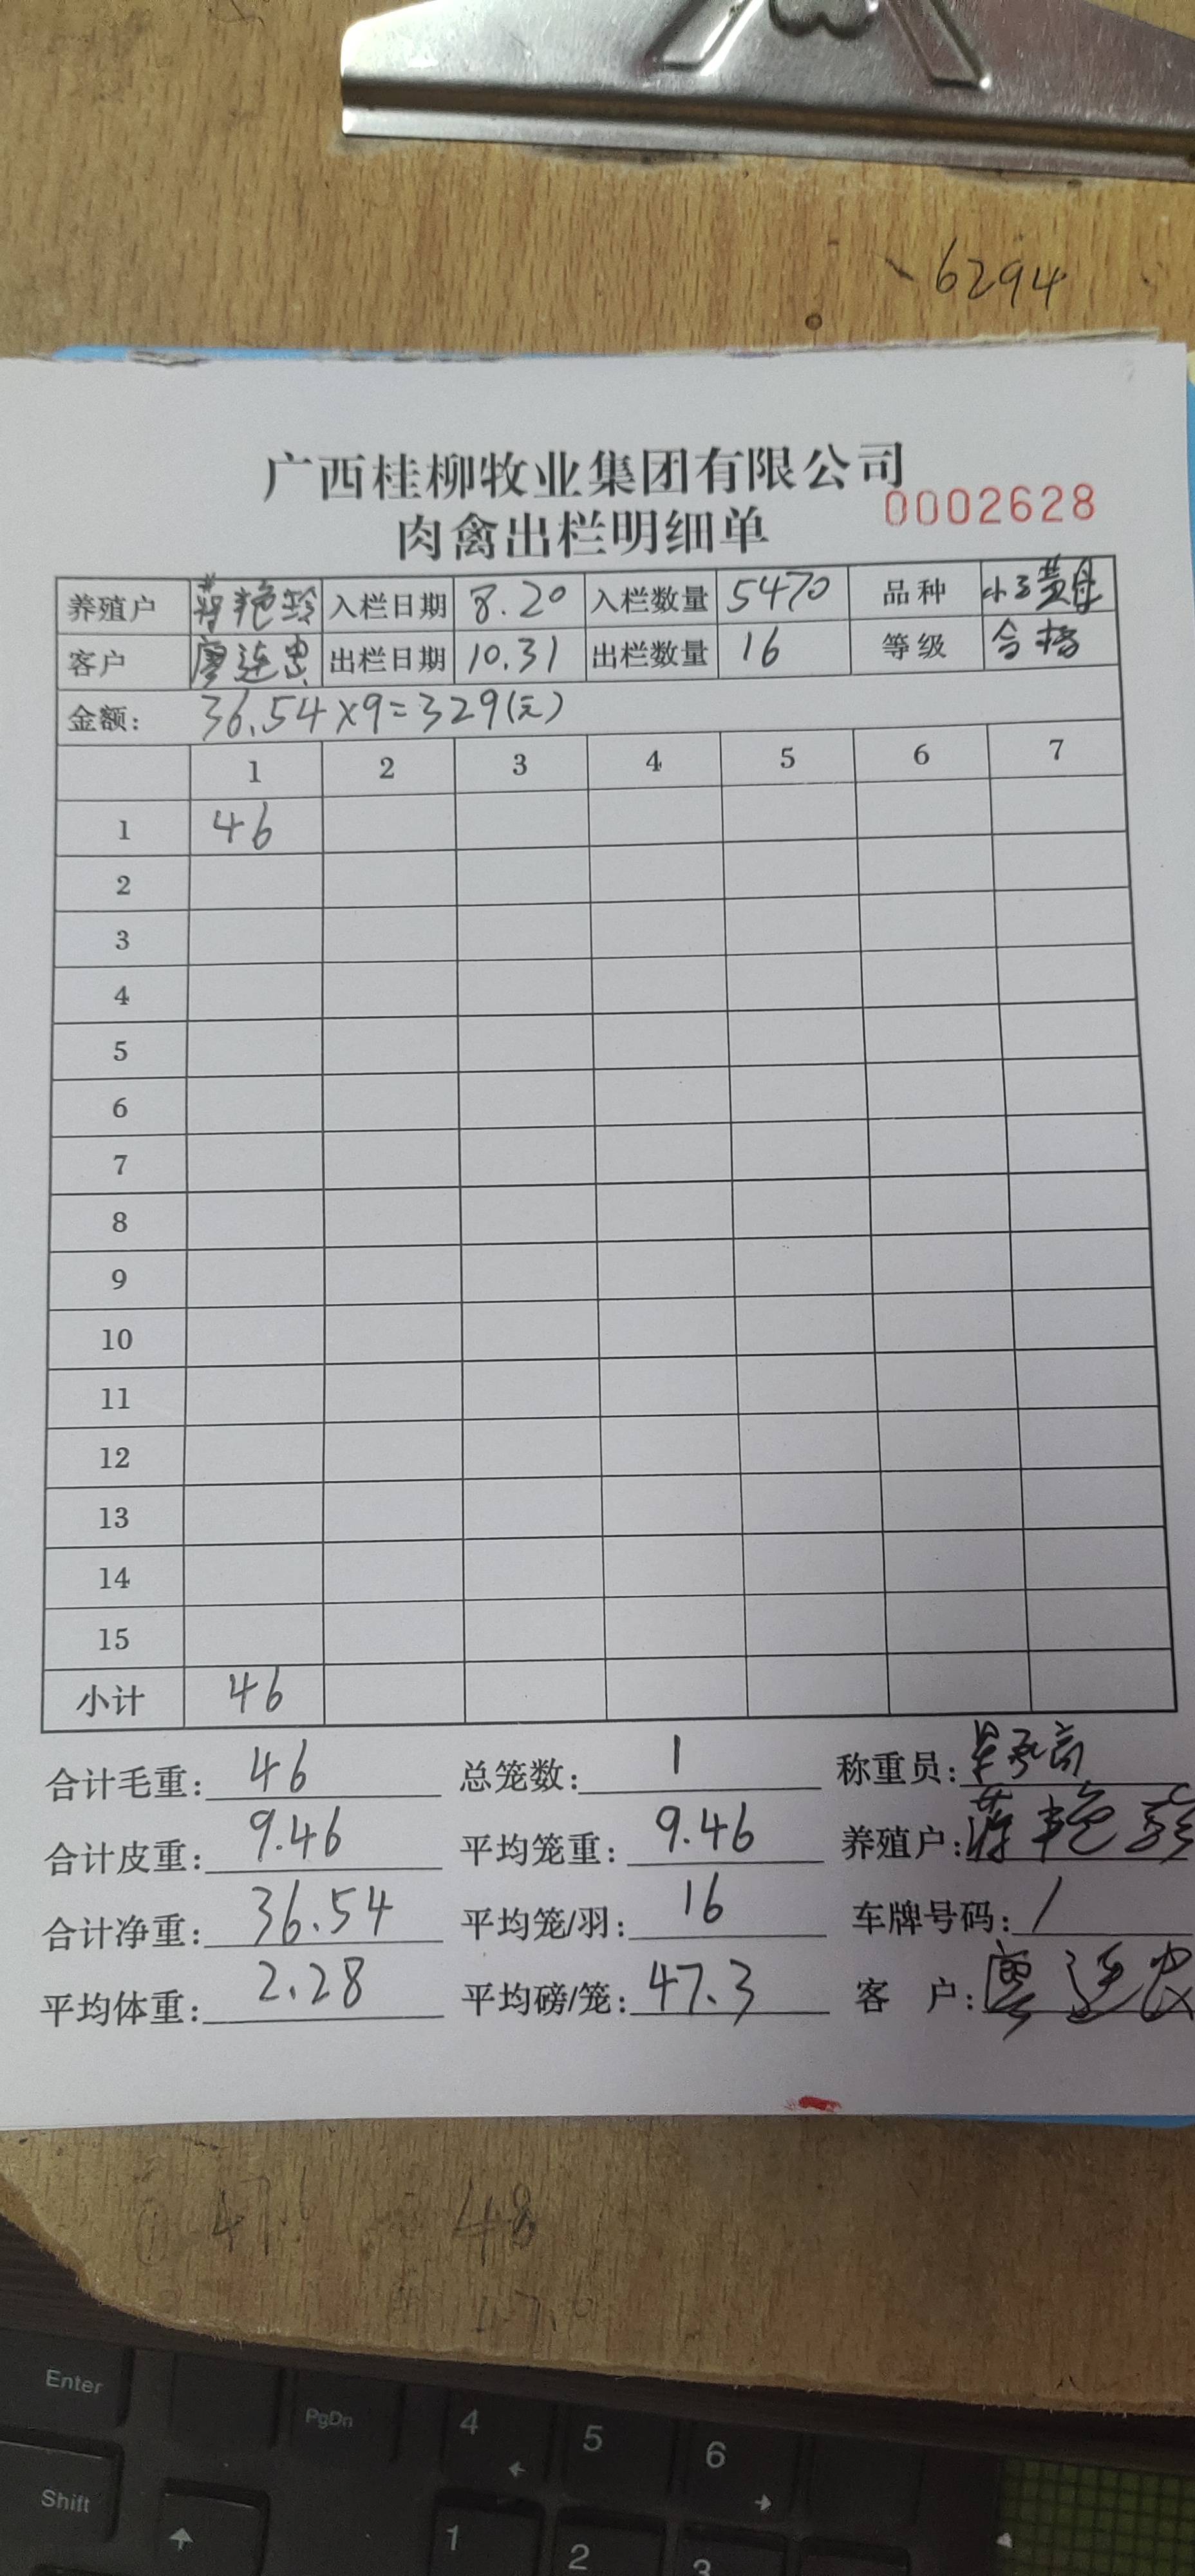 6294
广西桂柳牧业集团有限公司
0002628
肉禽出栏明细单
养殖户 蒋艳玲 入栏日期 8.20 入栏数量 5470 品种
客户 廖连忠 出栏日期 10.31 出栏数量 16 等级 合格
金额: 36.54×9=329(元)
1 2 3 4 5 6 7
1 46
2
3
4
5
6
7
8
9
10
11
12
13
14
15
小计 46
合计毛重: 46 总笼数: 1 称重员:
合计皮重: 9.46 平均笼重: 9.46 养殖户: 蒋艳玲
合计净重: 36.54 平均笼/羽: 16 车牌号码: /
平均体重: 2.28 平均磅/笼: 47.3 客 户: 廖连忠
48
Enter
PgDn
4
5
6
Shift
1
2
3